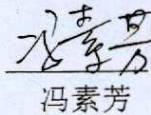 冯素芳
冯素芳